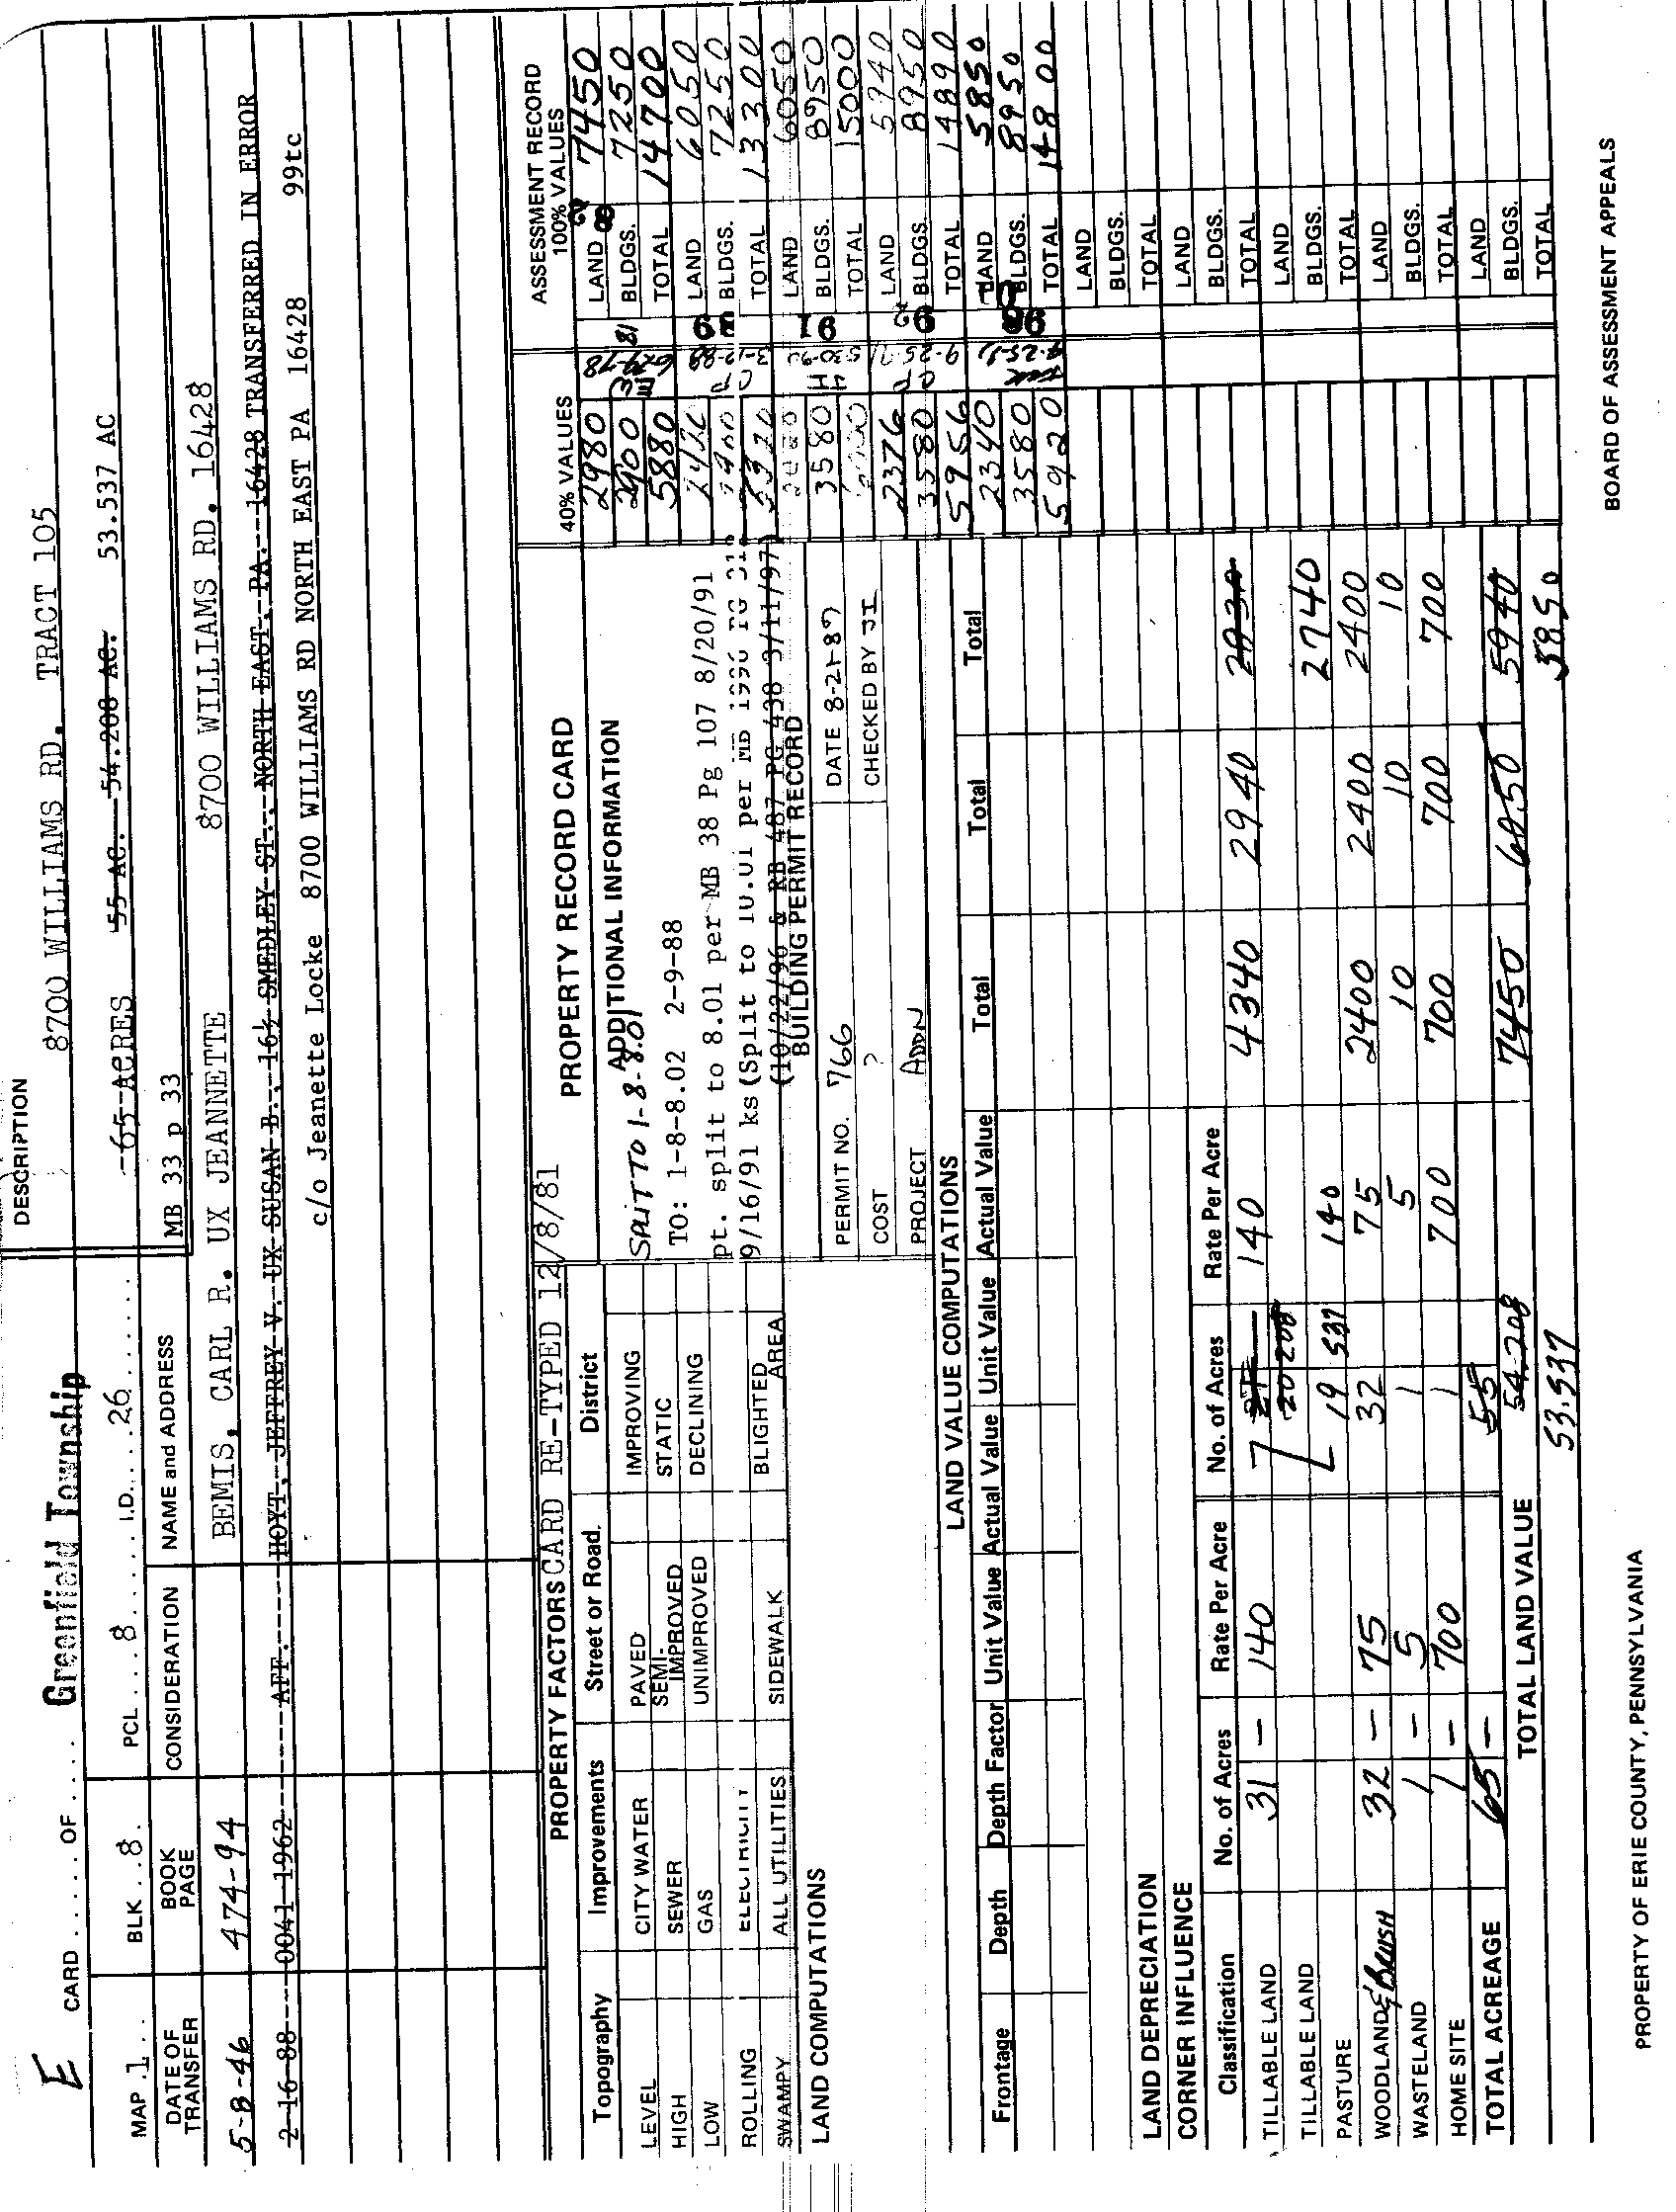 E CARD ..... OF .... Greenfield Township
DESCRIPTION
8700 WILLIAMS RD. TRACT 105
MAP .1... BLK ..8. PCL ...8..... I.D....26........
65 ACRES 55 AC. 54.208 AC. 53.537 AC
DATE OF TRANSFER BOOK PAGE CONSIDERATION NAME and ADDRESS MB 33 p 33
5-8-46 474-94 BEMIS, CARL R. UX JEANNETTE 8700 WILLIAMS RD. 16428
2-16-88 0041 1962 AFF. HOYT, JEFFREY V. UX SUSAN B., 16½ SMEDLEY ST., NORTH EAST, PA. 16428 TRANSFERRED IN ERROR
c/o Jeanette Locke 8700 WILLIAMS RD NORTH EAST PA 16428 99tc
PROPERTY FACTORS CARD RE-TYPED 12/8/81
Topography Improvements Street or Road. District
LEVEL CITY WATER PAVED IMPROVING
HIGH SEWER SEMI-IMPROVED STATIC
LOW GAS UNIMPROVED DECLINING
ROLLING ELECTRICITY
SWAMPY ALL UTILITIES SIDEWALK BLIGHTED AREA
LAND COMPUTATIONS
PROPERTY RECORD CARD
ADDITIONAL INFORMATION
SPLIT TO 1-8-8.01
TO: 1-8-8.02 2-9-88
pt. split to 8.01 per MB 38 Pg 107 8/20/91
9/16/91 ks (Split to 10.01 per MB 1996 PG 31
(10/22/96 & RB 487 PG 438 3/11/97)
BUILDING PERMIT RECORD
PERMIT NO. 766 DATE 8-21-87
COST ? CHECKED BY JI
PROJECT ADDN
ASSESSMENT RECORD
40% VALUES 100% VALUES
2980 LAND 7450
2900 BLDGS. 7250
5880 TOTAL 14700
LAND 6050
BLDGS. 7250
TOTAL 13300
LAND 6050
3580 BLDGS. 8950
TOTAL 15000
2376 LAND 5940
3580 BLDGS. 8950
5956 TOTAL 14890
2340 LAND 5850
3580 BLDGS. 8950
5920 TOTAL 14800
LAND
BLDGS.
TOTAL
LAND
BLDGS.
TOTAL
LAND
BLDGS.
TOTAL
LAND
BLDGS.
TOTAL
LAND
BLDGS.
TOTAL
LAND VALUE COMPUTATIONS
Frontage Depth Depth Factor Unit Value Actual Value Unit Value Actual Value Total Total Total
LAND DEPRECIATION
CORNER INFLUENCE
Classification No. of Acres Rate Per Acre No. of Acres Rate Per Acre
TILLABLE LAND 31 - 140 21 140 4340 2940 2830
TILLABLE LAND 20 208 19 537 140 2740
PASTURE
WOODLAND & BRUSH 32 - 75 32 75 2400 2400 2400
WASTELAND 1 - 5 1 5 10 10 10
HOME SITE 1 - 700 1 700 700 700 700
TOTAL ACREAGE 65 - 55 54.208 53.537
TOTAL LAND VALUE 7450 6050 5940 5850
PROPERTY OF ERIE COUNTY, PENNSYLVANIA BOARD OF ASSESSMENT APPEALS